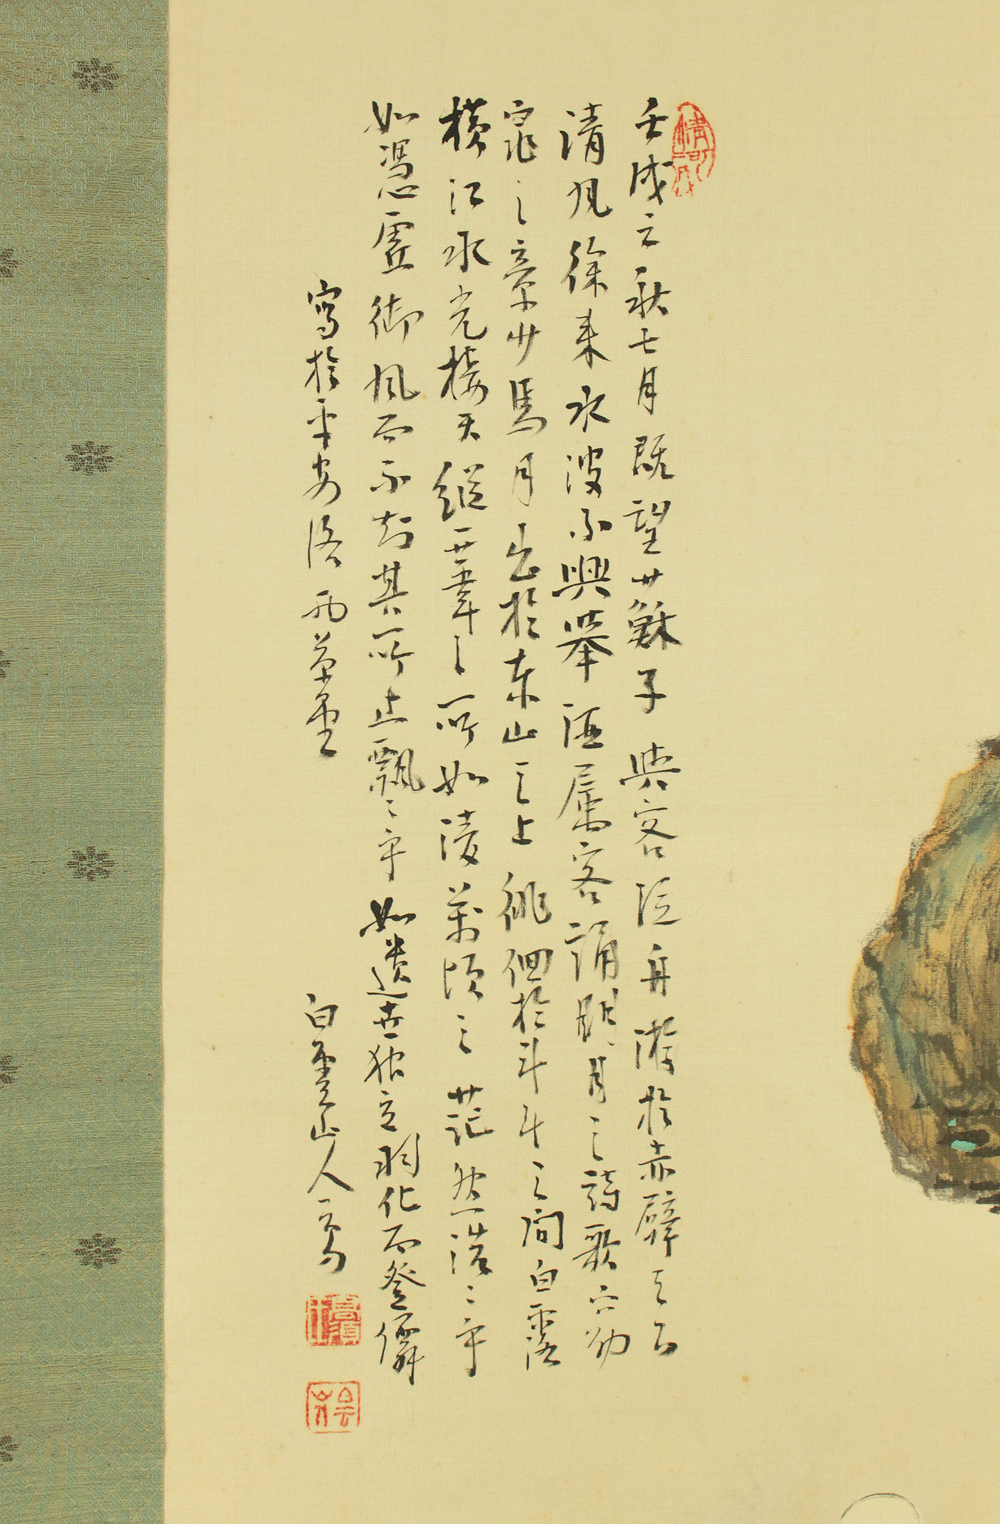 壬戌之秋七月既望蘇子與客泛舟游於赤壁之下
清風徐来水波不興舉酒属客誦明月之詩歌窈
窕之章少焉月出於東山之上徘徊於斗牛之間白露
横江水光接天縱一葦之所如陵萬頃之茫然浩〻乎
如憑虚御風而不知其所止飄〻乎如遺世独立羽化而登僊
寫於平安洛西草堂 白雲山人